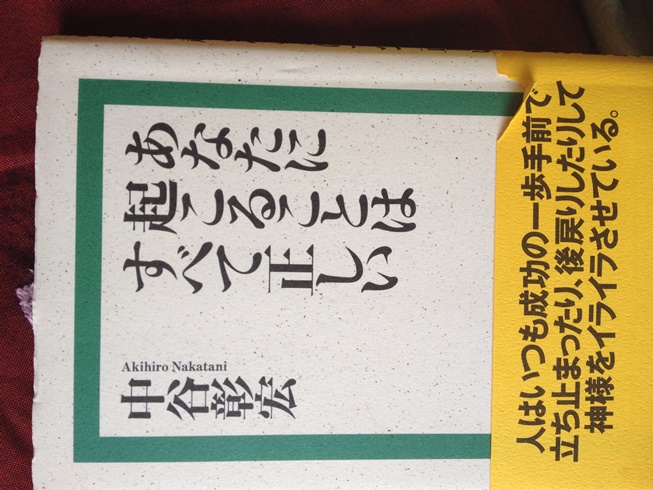 あなたに
起こることは
すべて正しい
Akihiro Nakatani
中谷彰宏
人はいつも成功の一歩手前で
立ち止まったり、後戻りしたりして
神様をイライラさせている。